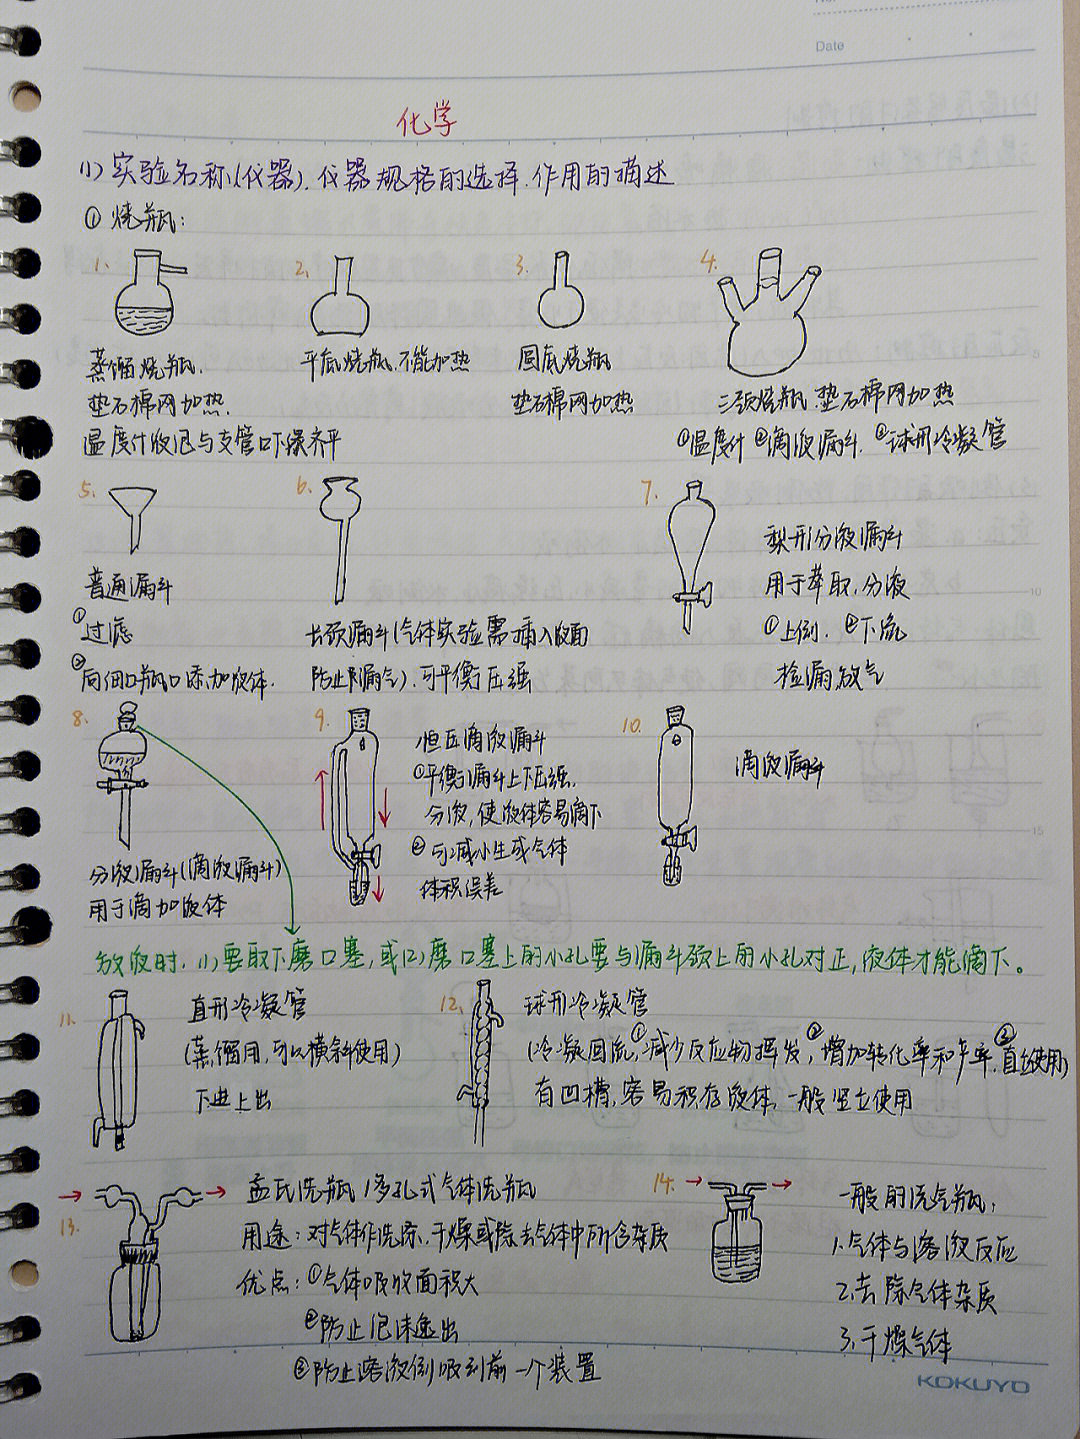 Date
化学
(1) 实验名称(仪器).仪器规格的选择.作用的描述
① 烧瓶:
1.
2.
3.
4.
蒸馏烧瓶.
垫石棉网加热.
温度计液泡与支管口下缘齐平
平底烧瓶.不能加热
圆底烧瓶
垫石棉网加热
三颈烧瓶.垫石棉网加热
①温度计 ②滴液漏斗. ③球形冷凝管
5.
6.
7.
普通漏斗
①过滤
②向细口瓶口添加液体.
长颈漏斗(气体实验需插入液面
防止漏气).可平衡压强
梨形分液漏斗
用于萃取.分液
①上倒. ②下流
检漏放气
8.
9.
10.
分液漏斗(滴液漏斗)
用于滴加液体
恒压滴液漏斗
①平衡漏斗上下压强.
分液,使液体容易滴下
②可减小生成气体
体积误差
滴液漏斗
放液时.(1)要取下磨口塞,或(2)磨口塞上的小孔要与漏斗颈上的小孔对正,液体才能滴下。
11.
直形冷凝管
(蒸馏用,可以横斜使用)
下进上出
12.
球形冷凝管
(冷凝回流,①减少反应物挥发,②增加转化率和产率.③直立使用)
有凹槽,容易积存液体,一般竖立使用
13.
孟氏洗瓶/多孔式气体洗瓶
用途:对气体作洗涤.干燥或除去气体中所含杂质
优点:①气体吸收面积大
②防止泡沫逸出
③防止溶液倒吸到前一个装置
14.
一般的洗气瓶:
1.气体与溶液反应
2.去除气体杂质
3.干燥气体
KOKUYO